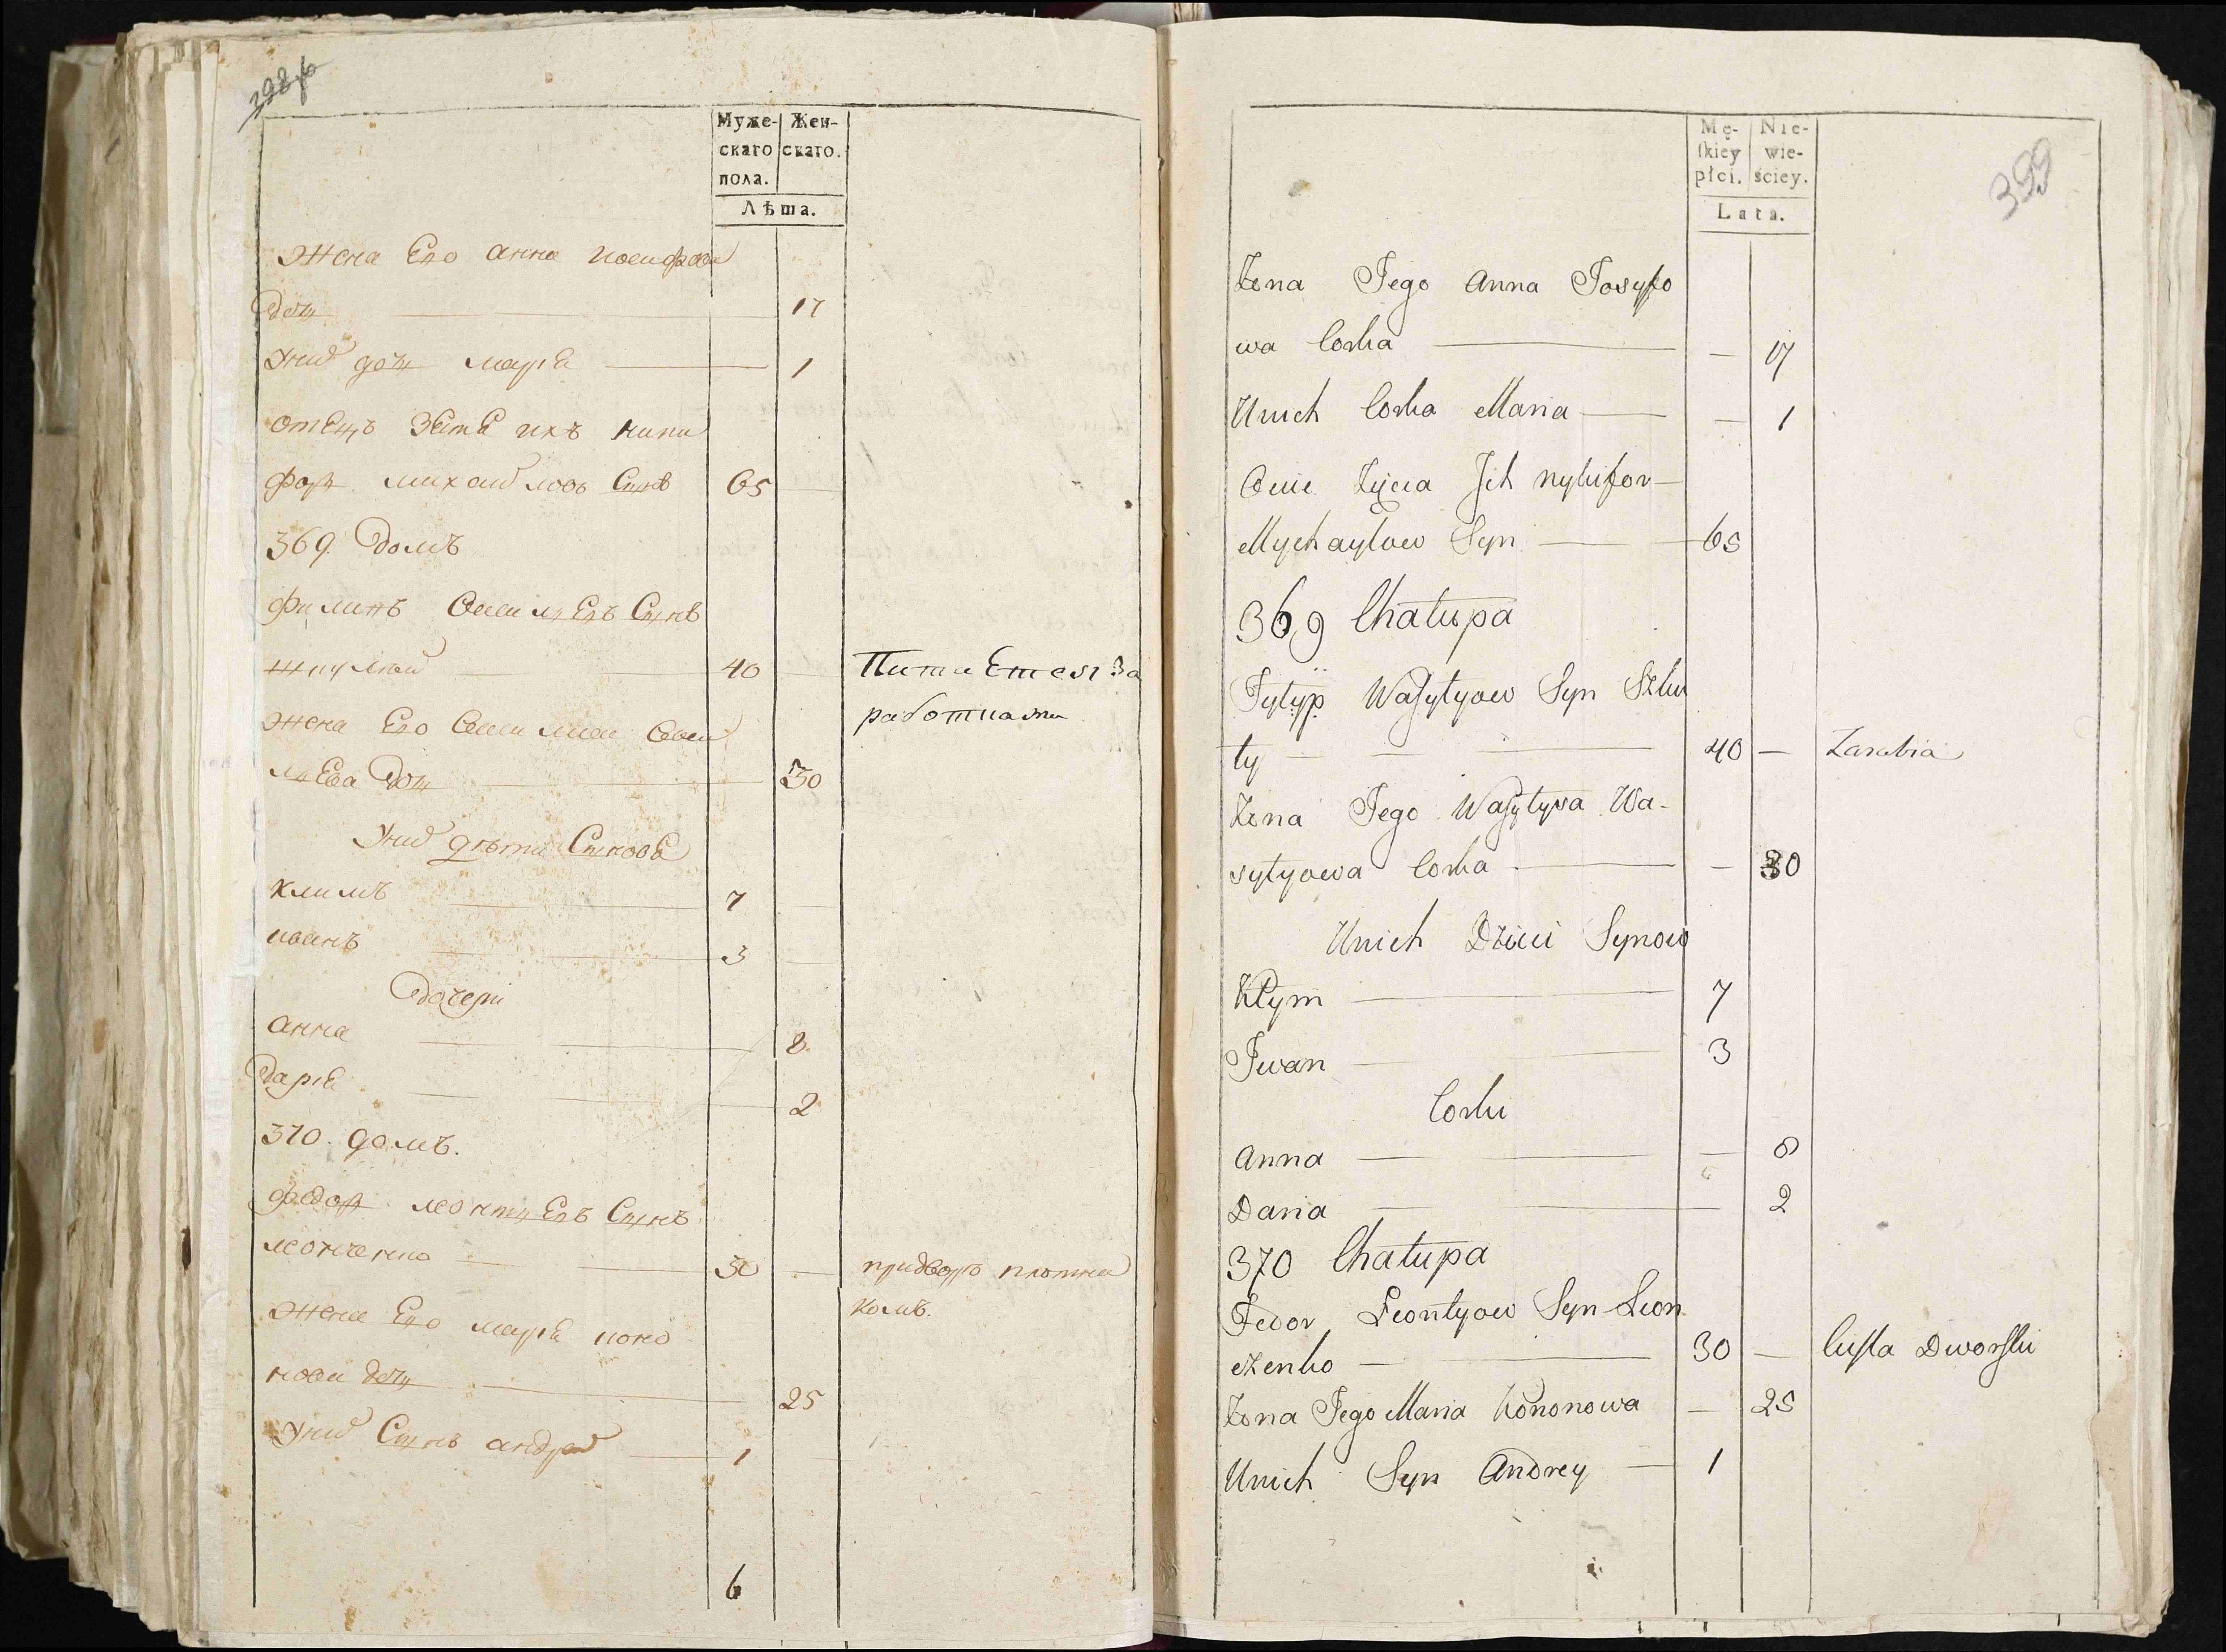 398об
Муже- Жен-
скаго скаго.
пола.
Лѣта.
жена Его анна иосифова
дочь 17
Унихъ дочь мариа 1
отецъ Зята ихъ ники
форъ михайловъ Сынъ 65
369 домъ
филипъ Василиевъ Сынъ
40 Питается За
работками
жена Его Василиса Васи
лиева дочь 30
Унихъ дѣти Сыновя
климъ 7
иванъ 3
дочери
анна 8
дариа 2
370. домъ.
федоръ леонтиевъ Сынъ
леонченко 30 придворъ плотни
комъ.
жена Его мариа коно
нова дочь 25
Унихъ Сынъ андрей 1
6
399
Mę- Nie-
skiey wie-
płci. ściey.
Lata.
Zona Jego Anna Josyfo
wa Corka — 17
Unich Corka Maria — 1
Jch nykifor
Mychayłow Syn 65
369 Chałupa
Fyłyp Wasyłyow Syn Szku
ty 40 — Zarabia
Zona Jego Wasyłysa Wa-
syłyowa Corka — 30
Unich Dzieci Synow
Kłym 7
Jwan 3
Corki
Anna — 8
Daria 2
370 Chałupa
Fedor Leontyow Syn Leon
czenko 30 — Cieśla Dworski
Zona Jego Maria Kononowa — 25
Unich Syn Andrey 1